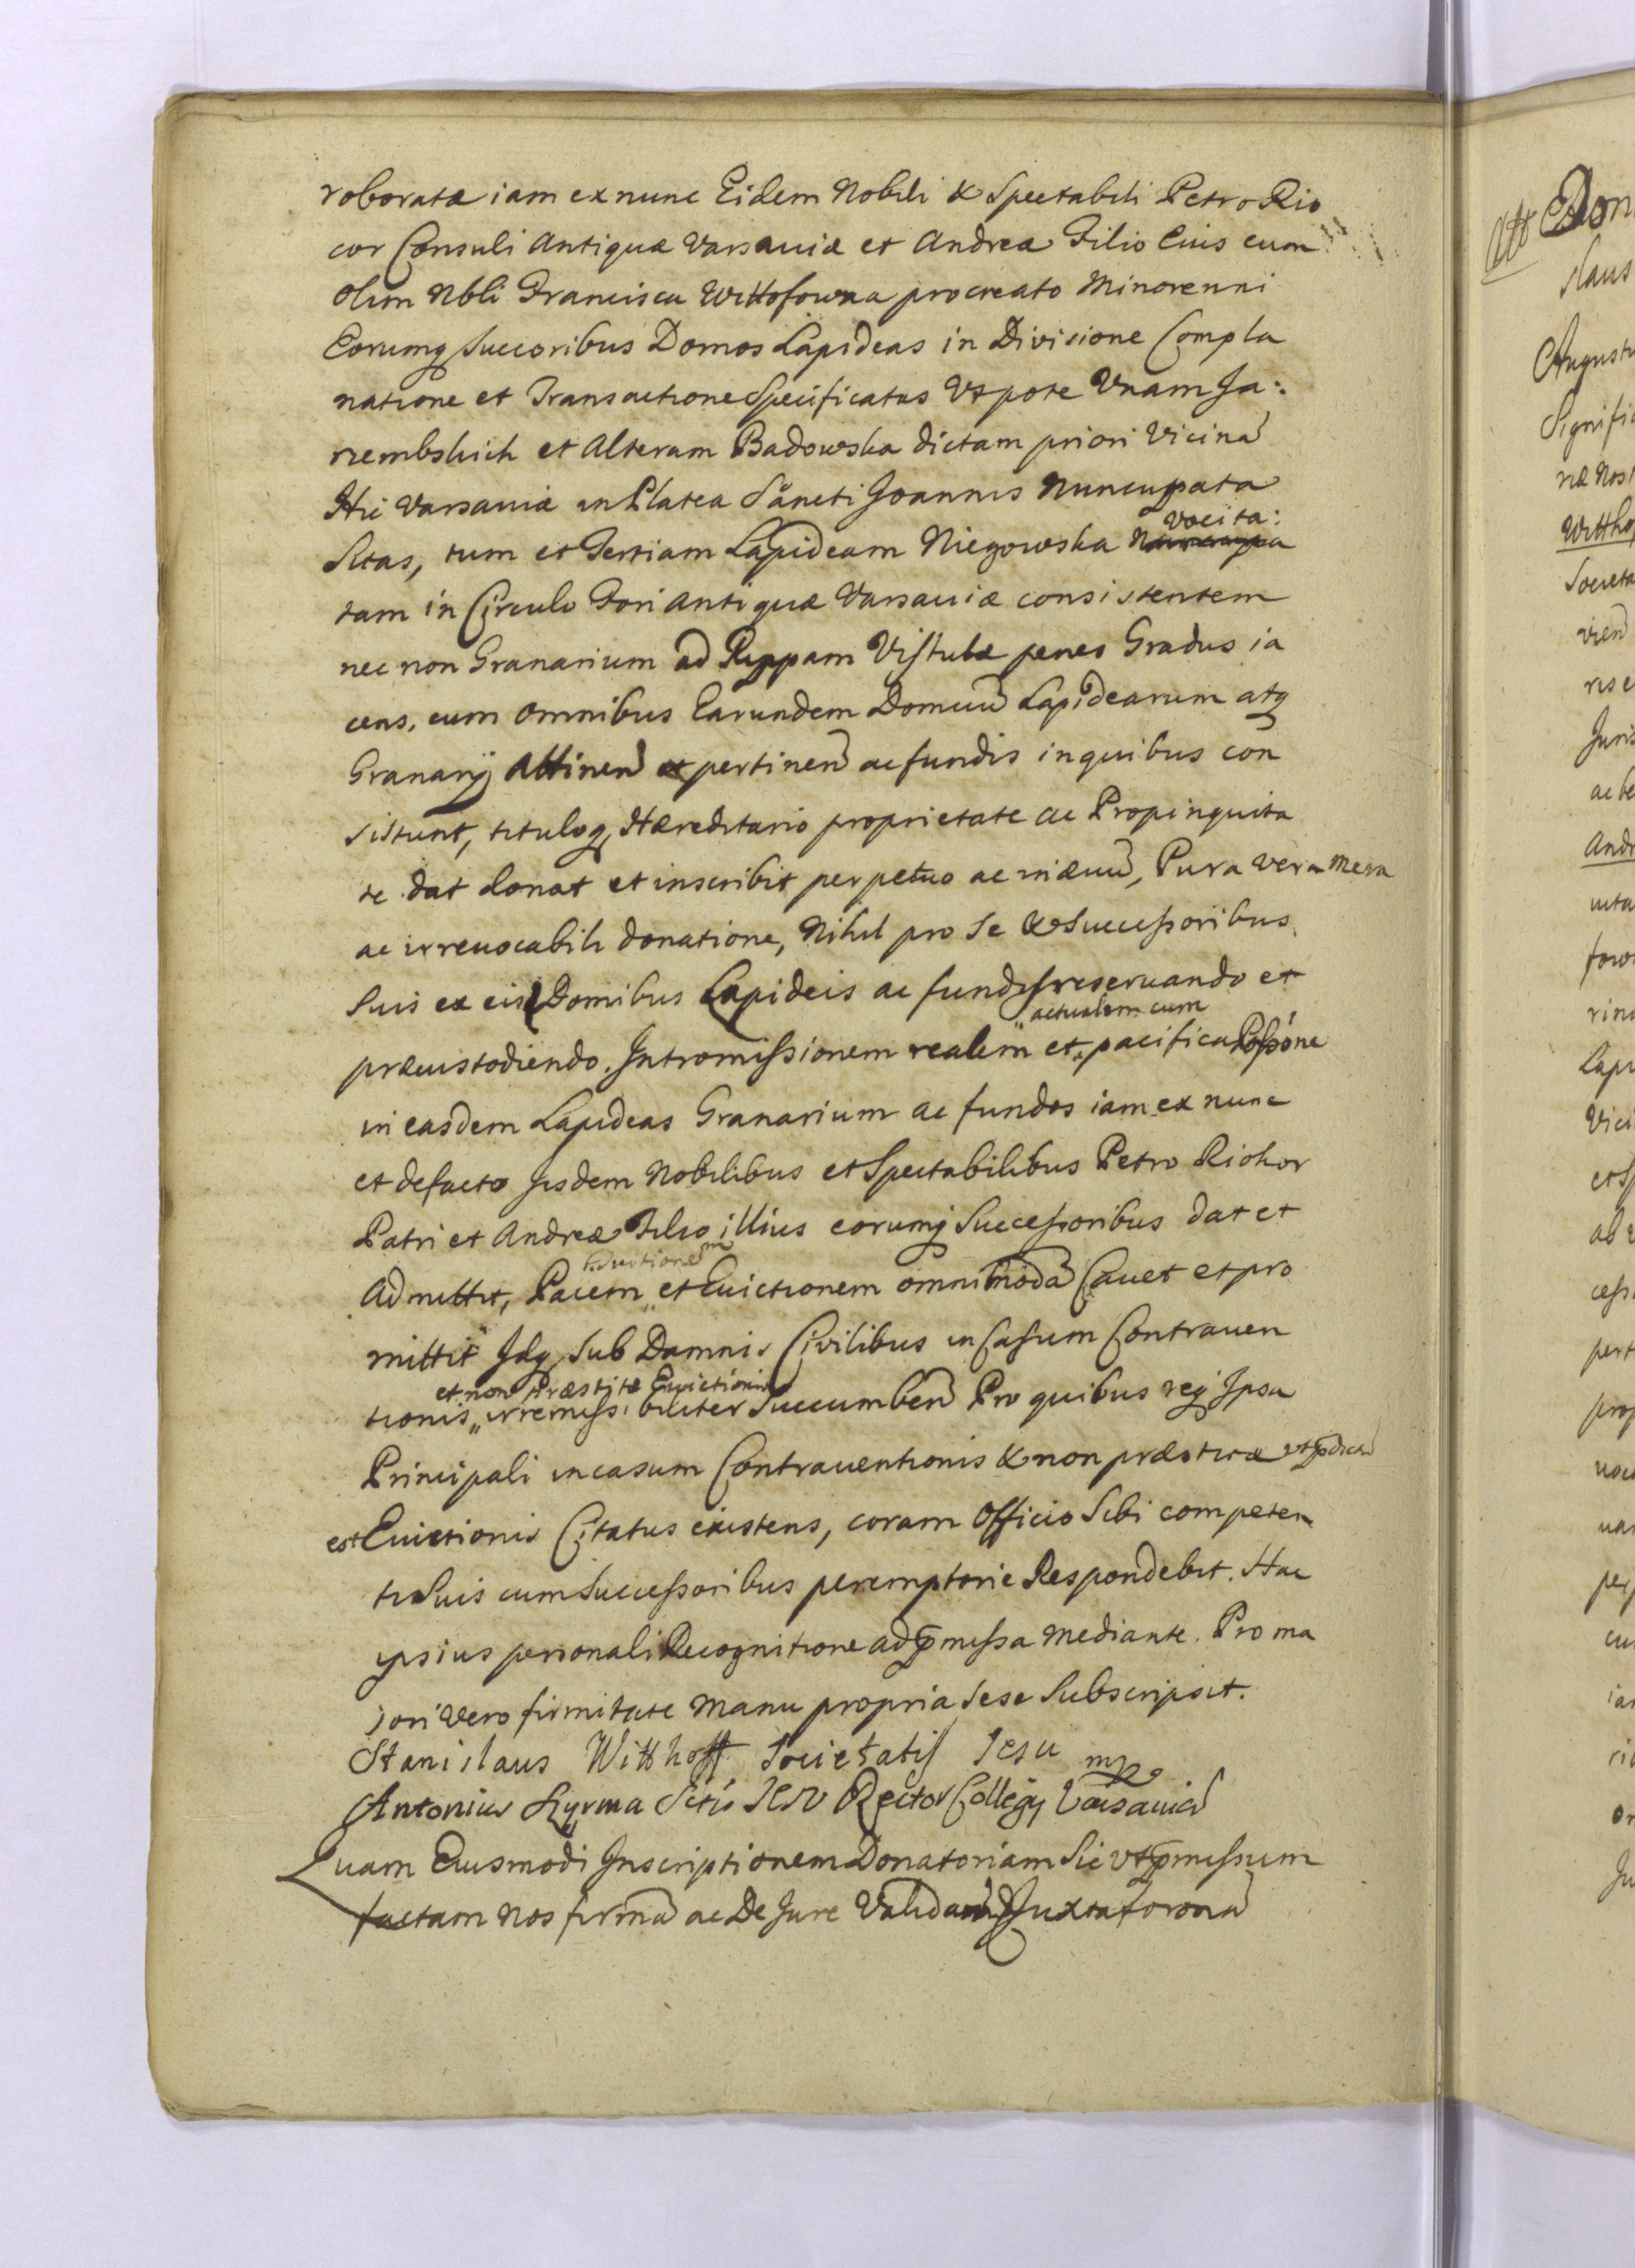 roboratæ iam ex nunc Eidem Nobili & Spectabili Petro Rio
cor Consuli Antiquæ Varsauiæ et Andreæ Filio Eius cum
olim Nbli Francisca Wittofowna procreato Minorenni
Eorumq succoribus Domos Lapideas in Divisione Compla
natione et Transactione Specificatas Vtpote Vnam Ja:
rembskich et Alteram Badowska dictam priori Vicinã
Hic Varsauiæ in Platea Sancti Joannis Nuncupata
Sitas, tum et Tertiam Lapideam Niegowska Vocita:
tam in Circulo Fori Antiquæ Varsauiæ consistentem
nec non Granarium ad Rippam Vistulæ penes Gradus ia
cens, cum omnibus Earundem Domuũ Lapidearum atq
Granarij Attinen et pertinen ac fundis in quibus con
sistunt, tituloq Hæreditario proprietate ac Propinquita
te dat donat et inscribit perpetuo ac in æuũ, Pura vera mera
ac irreuocabili donatione, Nihil pro Se & Successoribus
Suis ex eis Domibus Lapideis ac fundis reseruando et
actualem cum
præcustodiendo. Intromissionem realem et pacifica Possõne
in easdem Lapideas Granarium ac fundos iam ex nunc
et defacto Jisdem Nobilibus et Spectabilibus Petro Riokor
Patri et Andreæ Filio illius eorumq Successoribus dat et
Admittit, Pacem et Euictionem omnimodã Cauet et pro
mittit Idq, sub Damnis Civilibus in Casum Contrauen
et non Præstitæ Euictionis
tionis irremissibiliter Succumben Pro quibus rej Ipsa
Principali in casum Contrauentionis & non præstitæ
Euictionis Citatus existens, coram Officio Sibi competen
ti Suis cum Successoribus peremptorie Respondebit. Hac
ipsius personali Recognitione ad p̃missa mediante. Pro ma
jori vero firmitate manu propria sese Subscripsit.
Stanislaus Witthoff Societatis Jesu mp
Antonius Sctis JESV Rector Collegij Varsauien
Quam Eiusmodi Inscriptionem Donatoriam Sic vt p̃missum
factam Nos firmã ac De Jure Validam Juxta formã